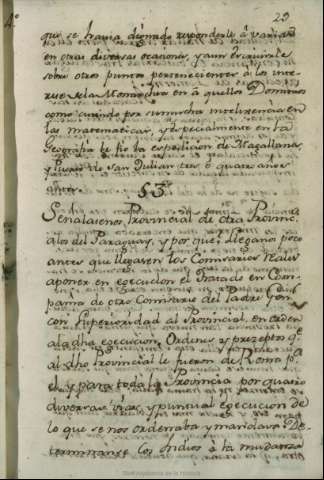 4º 25
que se havia dignado responderle à varias
en otras diversas ocasiones, y aun requirirle
sobre otros puntos pertenecientes à los inte-
reses de la Monarchia en aquellos Dominios
como quando por su mucha intelixencia en
las matematicas, y especialmente en la
Geografia le fio la expedicion de Magallanes,
y Puerto de San Julian tres ò quatro años
antes.
§ 3º
Señalaronos Provincial de otra Provincia
à los del Paraguay, y porque llegaria poco
antes que llegasen los Comisarios reales
a poner en execucion el Tratado en Com-
pañia de otro Comisario del Padre Gen
con Superioridad al Provincial en orden
ala dha execucion. Ordenes y preceptos qe
al dho Provincial le fueron de Roma pa
el y para toda la Provincia por quatro
diversas vias, y puntual egecucion de
lo que se nos ordenaba y mandava. De-
terminaronse los Indios à la mudanza